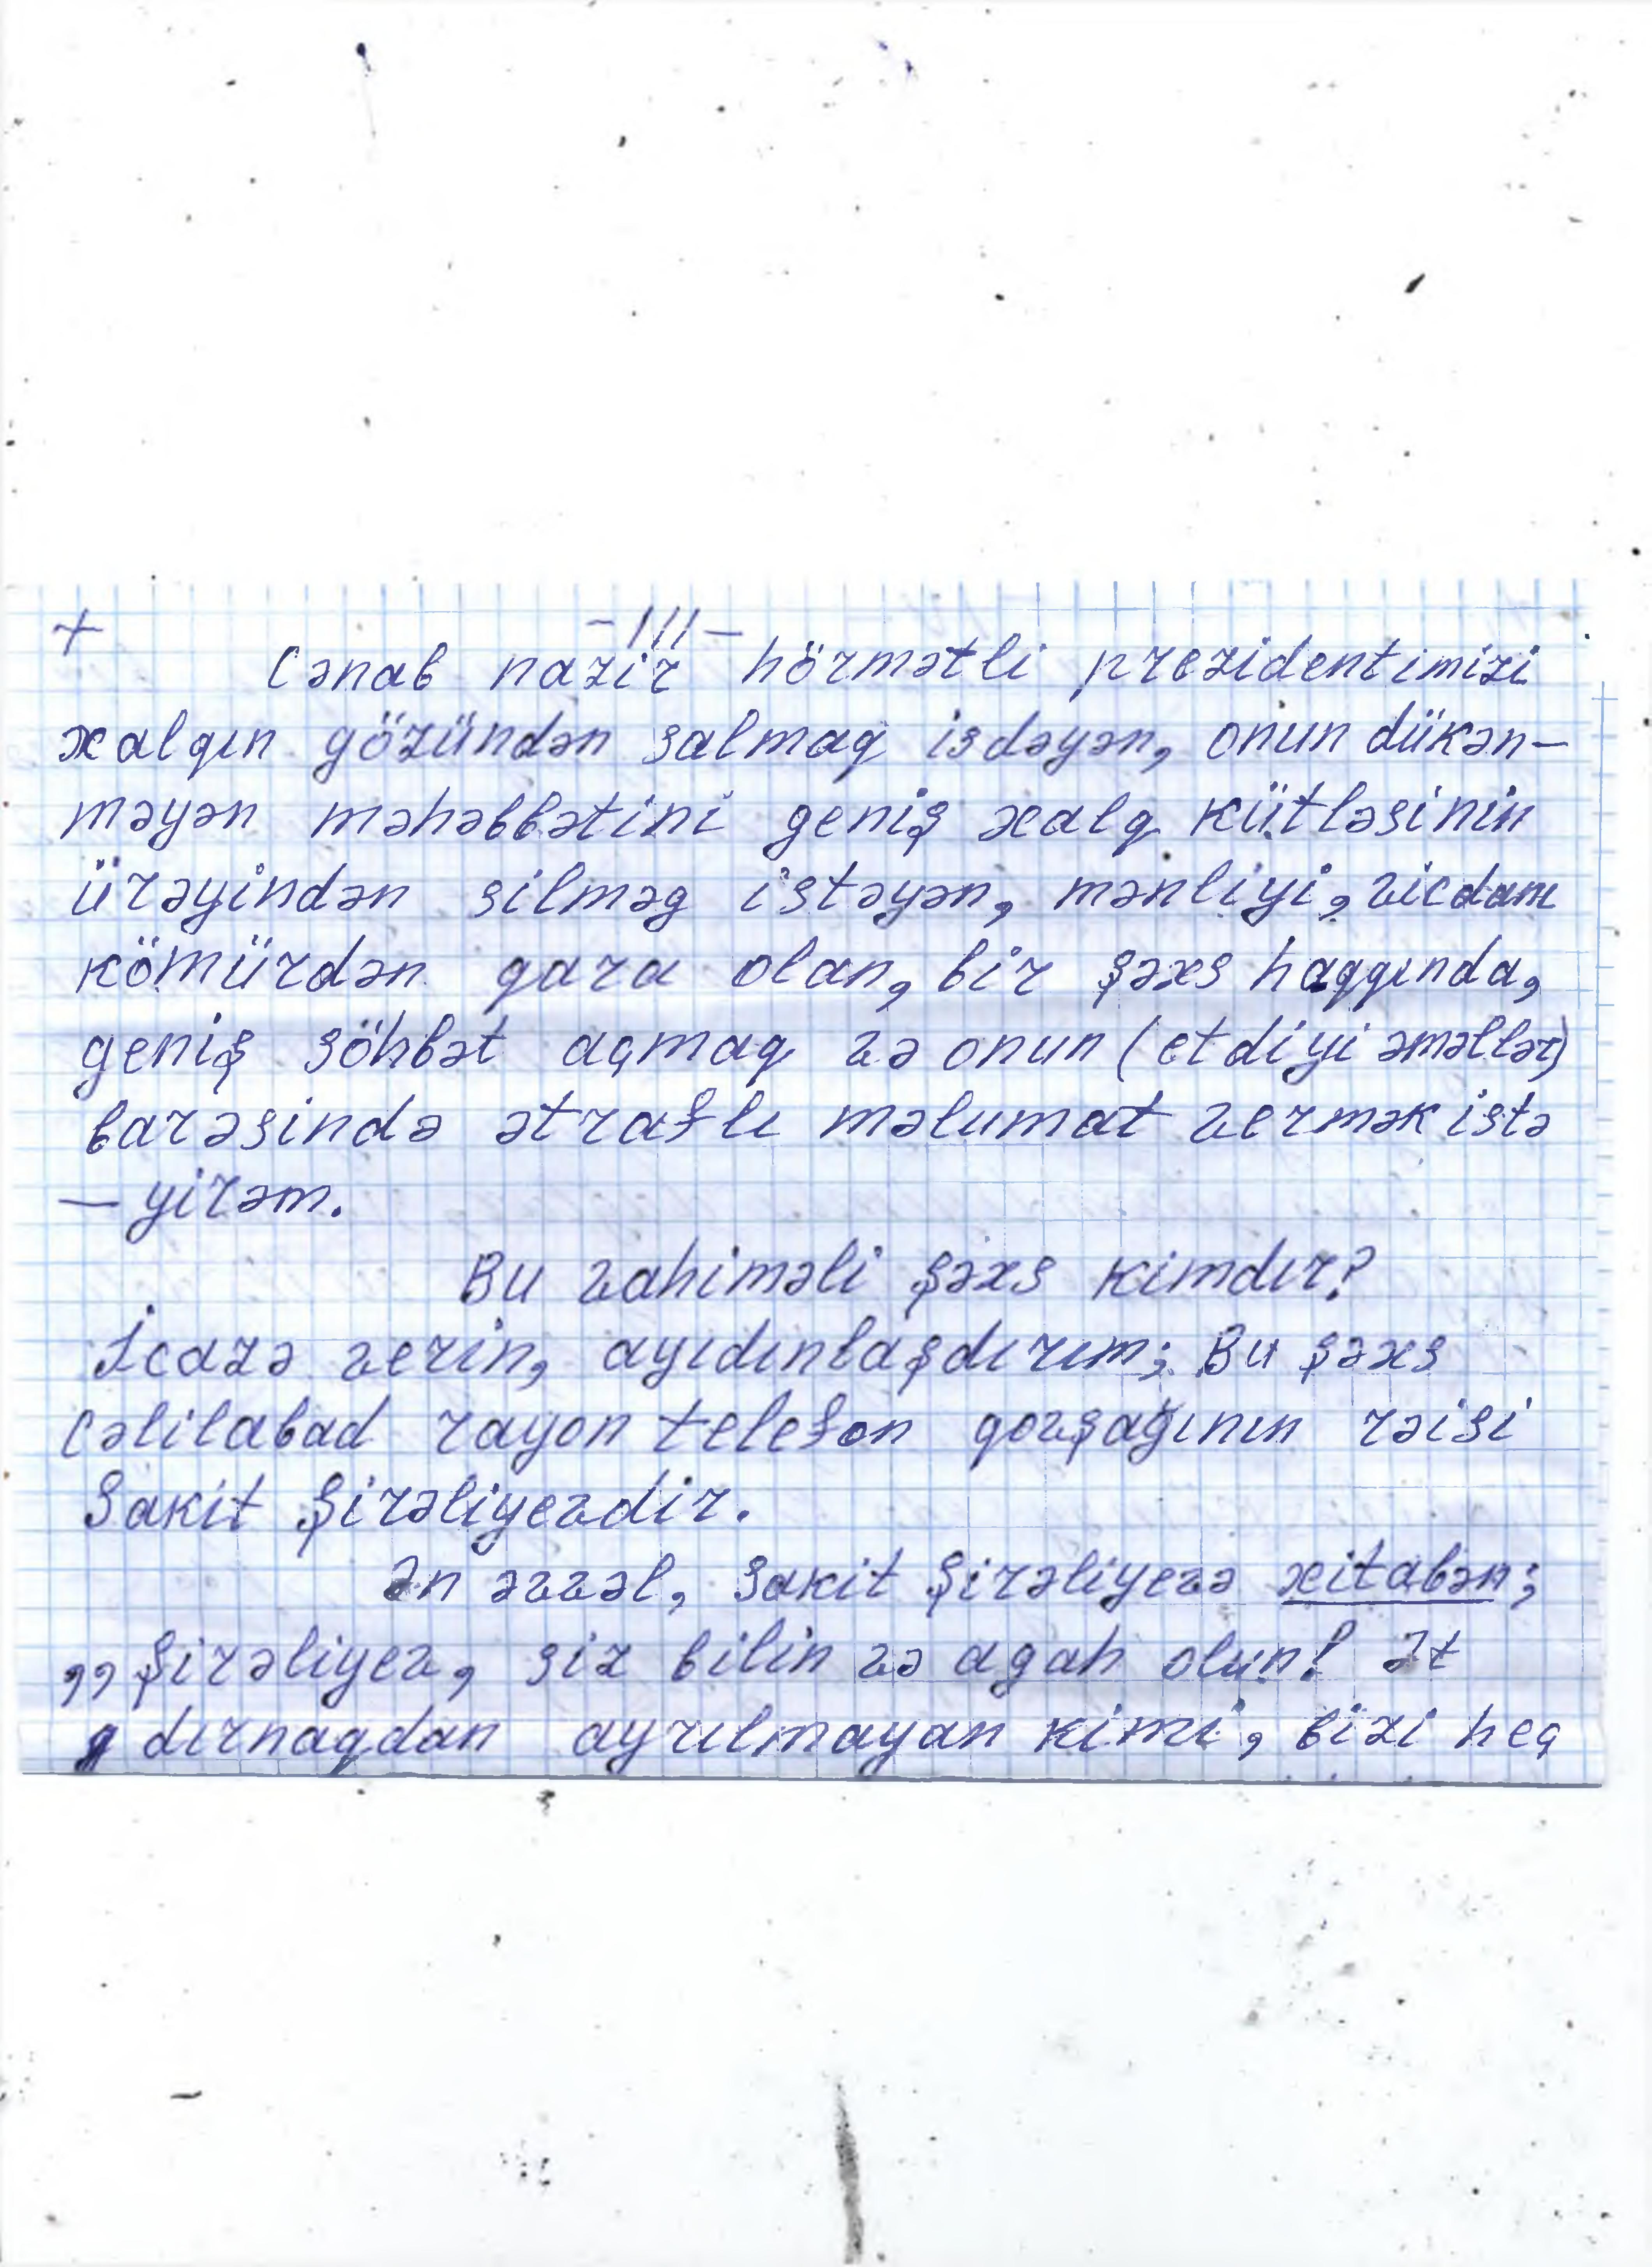 + -III-
Cənab nazir hörmətli prezidentimizi
xalqın gözündən salmaq isdəyən, onun dükən-
məyən məhəbbətini geniş xalq kütləsinin
ürəyindən silməg istəyən, mənliyi, vicdanı
kömürdən qara olan, bir şəxs haqqında,
geniş söhbət açmaq və onun (etdiyi əməllər)
barəsində ətraflı məlumat vermək istə
— yirəm.
Bu vahiməli şəxs kimdır?
İcazə verin, ayıdınlaşdırım; Bu şəxs
Cəlilabad rayon telefon qovşağının rəisi
Sakit Şirəliyevdir.
Ən əvvəl, Sakit Şirəliyevə xitabən;
,, Şirəliyev, siz bilin və agah olun! Ət
dırnaqdan ayrılmayan kimi, bizi heç